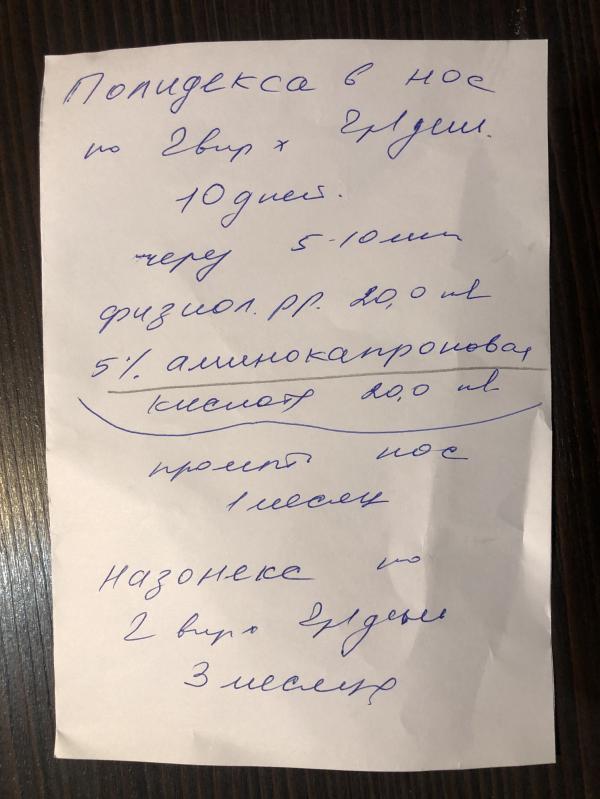 Полидекса в нос
по 2 впр х 2р/день.
10 дней.
через 5-10 мин
физиол. рр. 20,0 мл
5% аминокапроновая
кислота 20,0 мл
промыть нос
1 месяц
Назонекс по
2 впр х 2р/день
3 месяца